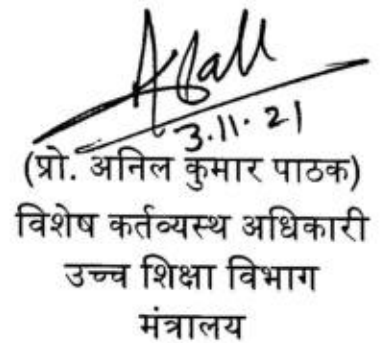 3.11.21
(प्रो. अनिल कुमार पाठक)
विशेष कर्तव्यस्थ अधिकारी
उच्च शिक्षा विभाग
मंत्रालय